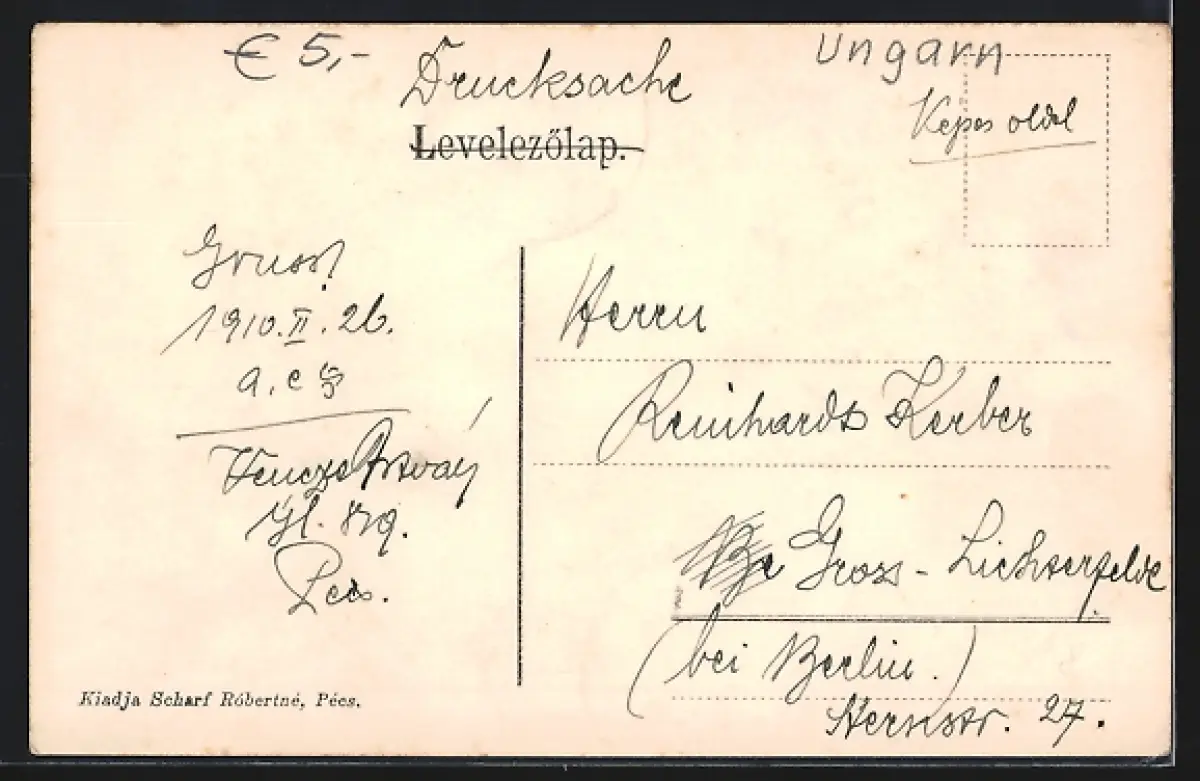 € 5,-
Ungarn
Drucksache
Képes oldal
Levelezőlap.
Gruss!
1910.II.26.
a. c
Vencze
Pécs.
Herrn
Reinhardt Kerber
Gross-Lichterfelde
(bei Berlin.)
Sternstr. 27.
Kiadja Scharf Róbertné, Pécs.